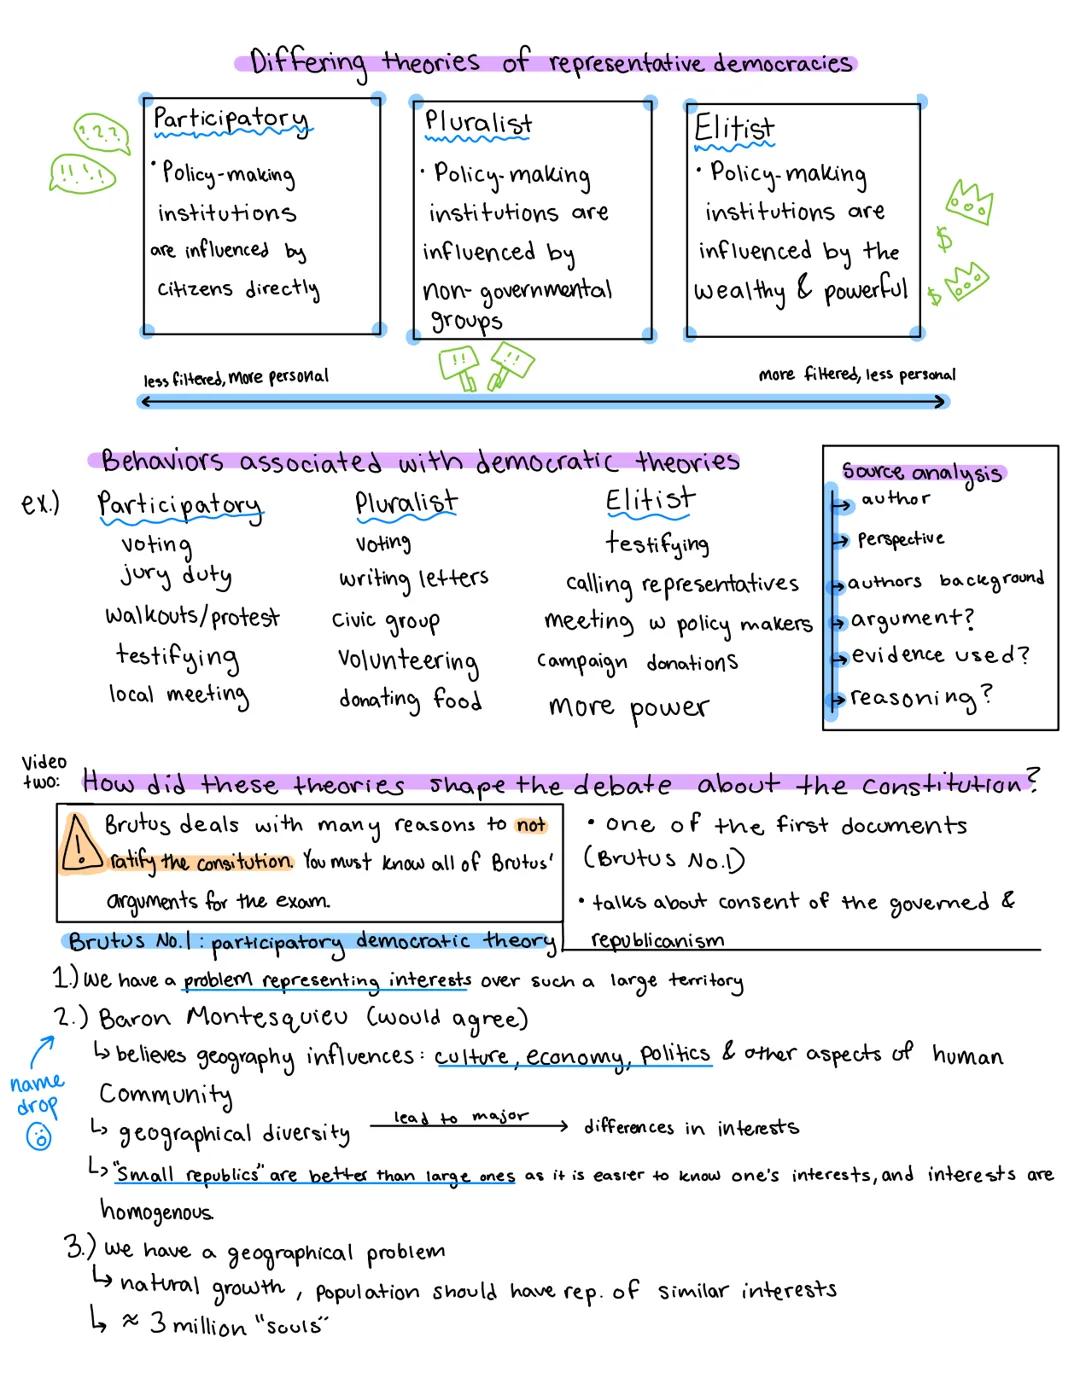 Differing theories of representative democracies
???
!! ! !
Participatory
• Policy-making
institutions
are influenced by
citizens directly
Pluralist
• Policy-making
institutions are
influenced by
non-governmental
groups
!! !!
Elitist
• Policy-making
institutions are
influenced by the
wealthy & powerful
$
$
less filtered, more personal
more filtered, less personal
Behaviors associated with democratic theories
ex.)
Participatory
voting
jury duty
walkouts/protest
testifying
local meeting
Pluralist
voting
writing letters
civic group
volunteering
donating food
Elitist
testifying
calling representatives
meeting w policy makers
campaign donations
more power
Source analysis
→ author
→ perspective
→ authors background
→ argument?
→ evidence used?
→ reasoning?
Video
two: How did these theories shape the debate about the constitution?
! Brutus deals with many reasons to not
ratify the consitution. You must know all of Brutus'
arguments for the exam.
• one of the first documents
(Brutus No.1)
• talks about consent of the governed &
republicanism
Brutus No.1: participatory democratic theory
1.) we have a problem representing interests over such a large territory
2.) Baron Montesquieu (would agree)
name
drop
↳ believes geography influences: culture, economy, politics & other aspects of human
community
↳ geographical diversity lead to major → differences in interests
↳ "small republics" are better than large ones as it is easier to know one's interests, and interests are
homogenous.
3.) we have a geographical problem
↳ natural growth, population should have rep. of similar interests
↳ ≈ 3 million "souls"